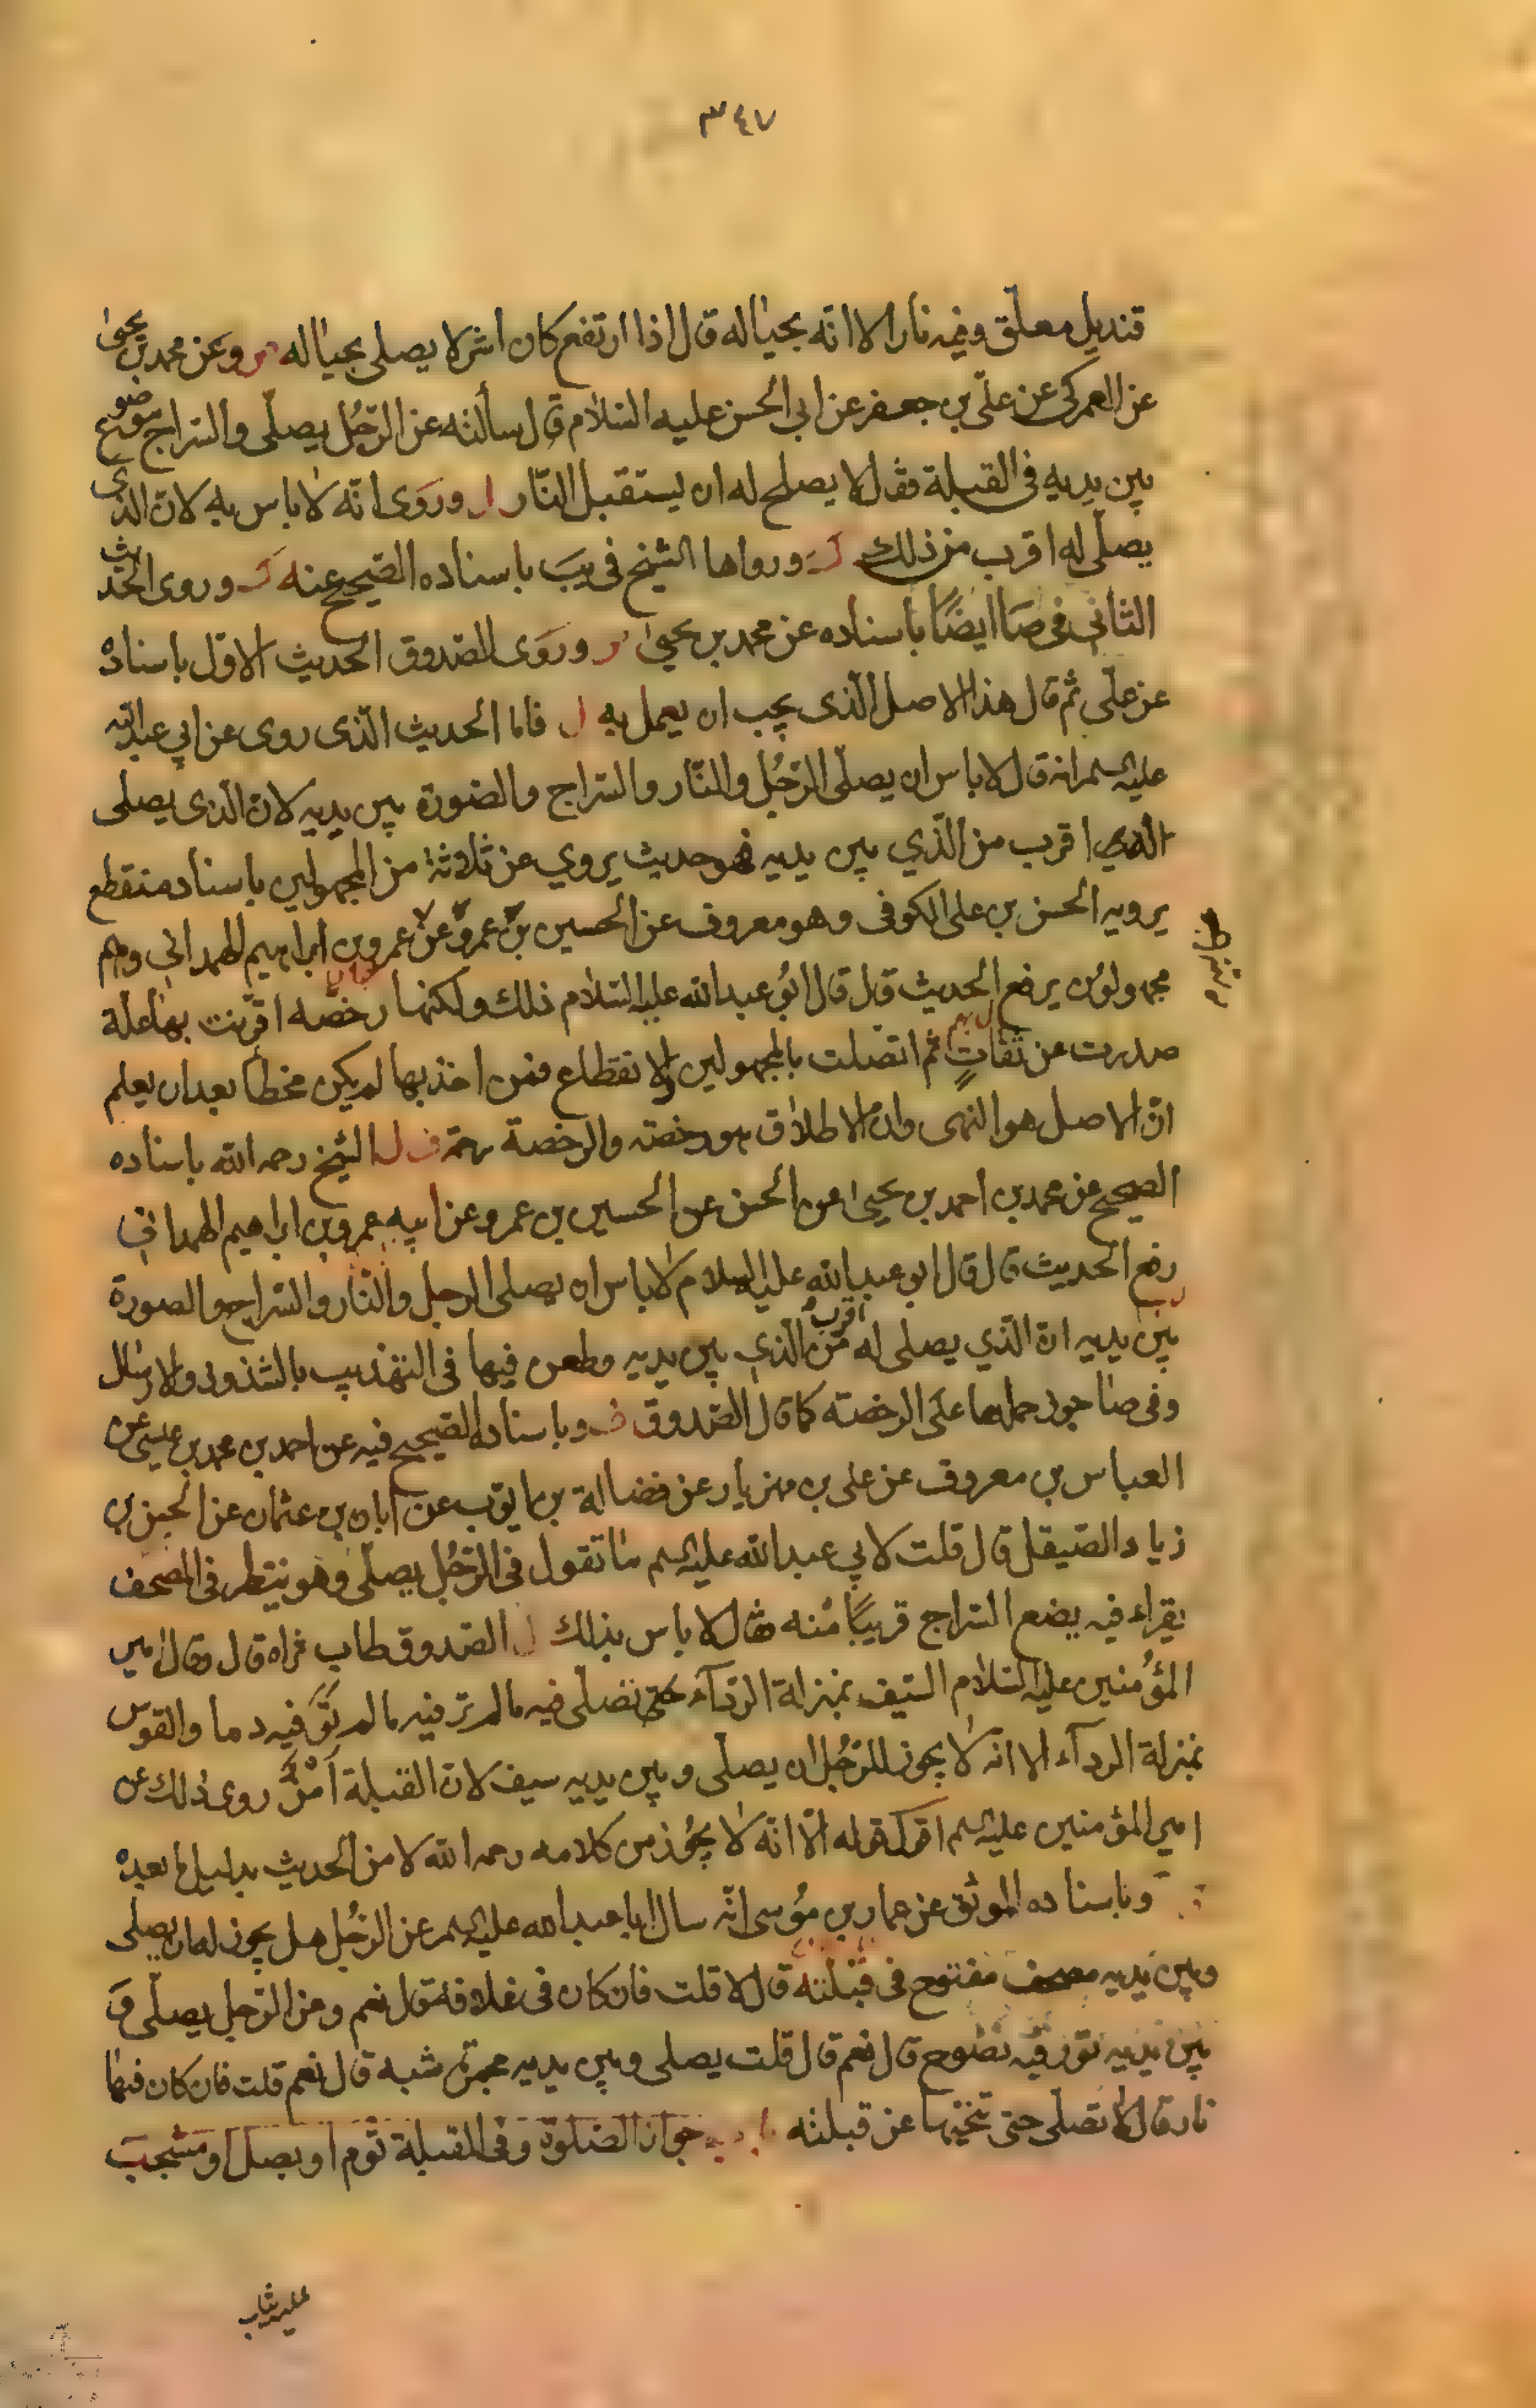 ٣٤٧
قنديل معلّق وفيه نار الا انه بحياله قال اذا ارتفع كان اشر لا يصلى بحياله وعن محمد بن يحيى
عن العمركى عن علّى بن جعفر عن ابى الحسن عليه السلام قال سألته عن الرّجُل يصلّى والسّراج موضوع
بين يديه فى القبلة فقال لا يصلح له ان يستقبل النّار وروَى انّه لا باس به لان الذى
يصلّى له اقرب من ذلك ورواها الشيخ فى يب باسناده الصّحيح عنه وروى الحديث
الثانى فى صا ايضًا باسناده عن محمد بن يحيى وروَى الصّدوق الحديث الاوّل باسناده
عن علّى ثم قال هذا الاصل الّذى يجب ان يعمل به فاما الحديث الّذى روى عن ابى عبد الله
عليه السلم انه قال لا باس ان يصلّى الرّجُل والنّار والسّراج والصّورة بين يديه لان الّذى يصلى
اقرب من الّذي بين يديه فهو حديث يروي عن ثلاثة من المجهولين باسناد منقطع
يرويه الحسن بن على الكوفى وهو معروف عن الحسين بن عمرو عن عمرو بن ابراهيم الهمدانى وهم
مجهولون يرفع الحديث قال قال ابُو عبد الله عليه السّلام ذلك ولكنها رخصّه اقترنت بها علّة
صدرت عن ثقاتٍ ثم اتصلت بالمجهولين والانقطاع فمن اخذ بها لم يكن مخطأ بعد ان يعلم
انّ الاصل هو النّهى وان الاطلاق هو رخصته والرخصة رحمة الشيخ رحمه الله باسناده
الصحيح عن محمد بن احمد بن يحيى عن الحسن عن الحسين بن عمرو عن ابيه عمرو بن ابراهيم الهمدانى
رفع الحديث قال قال ابو عبد الله عليه السلام لا باس ان يصلى الرجل والنّار والسّراج والصورة
بين يديه ان الّذي يصلى له اقرب من الّذي بين يديه وطعن فيها فى التهذيب بالشذوذ والارسال
وفى صا جوز حملها على الرخصته كما قال الصّدوق وباسناده الصّحيح فيه عن احمد بن محمد بن عيسى عن
العباس بن معروف عن على بن مهزيار عن فضالة بن ايوّب عن ابان بن عثمان عن الحسن بن
زياد الصّيقل قال قلت لابي عبد الله عليه السلم ما تقول فى الرّجُل يصلّى وهو ينظر فى المصحف
يقراء فيه يضع السّراج قريبًا منه فقال لا باس بذلك الصّدوق طاب ثراه قال وقال امير
المؤمنين عليه السّلام السّيف بمنزلة الرّدآء تصلى فيه ما لم تر فيه دما والقوس
بمنزلة الردآء الا انه لا يجوز للرّجُل ان يصلّى وبين يديه سيف لان القبلة اَمْنٌ روى ذلك عن
امير المؤمنين عليه السلم اقول قوله الّا انّه لا يجُوز من كلامه رحمه الله لا من الحديث بدليل ما بعده
وباسناده الموثق عن عمار بن مُوسى انّه سال ابا عبد الله عليه السلم عن الرّجُل هل يجوز له ان يصلى
وبين يديه مصحف مفتوح فى قبلته قال لا قلت فان كان فى غلافه قال نعم وعن الرّجل يصلّى و
بين يديه تور فيه نضوح قال نعم قال قلت يصلى وبين يديه مجمرة شبه قال نعم قلت فان كان فيها
نار قال لا تصلّى حتى تنحّيها عن قبلته جواز الصّلوة وفى القبلة ثوم او بصل او مشجب
عليه ثياب